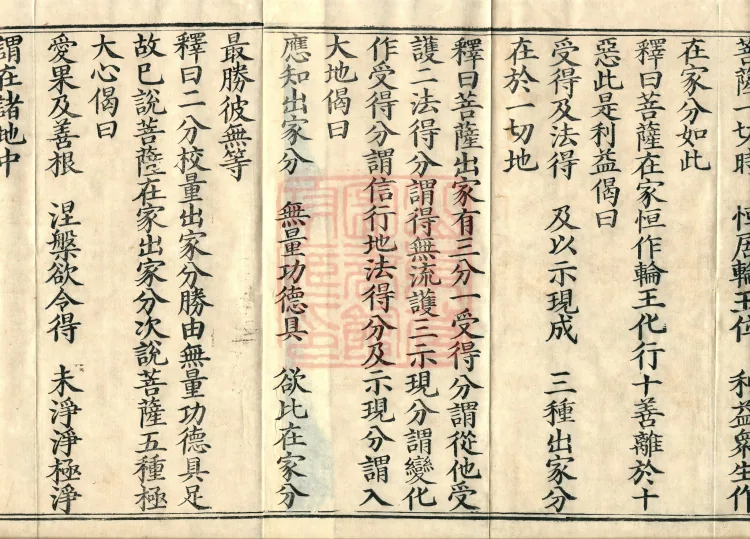 菩薩一切時 恒居輪王位 利益衆生作
在家分如此
釋曰菩薩在家恒作輪王化行十善離於十
惡此是利益偈曰
受得及法得 及以示現成 三種出家分
在於一切地
釋曰菩薩出家有三分一受得分謂從他受
護二法得分謂得無流護三示現分謂變化
作受得分謂信行地法得分及示現分謂入
大地偈曰
應知出家分 無量功德具 欲比在家分
最勝彼無等
釋曰二分校量出家分勝由無量功德具足
故已說菩薩在家出家分次說菩薩五種極
大心偈曰
愛果及善根 涅槃欲令得 未淨淨極淨
謂在諸地中